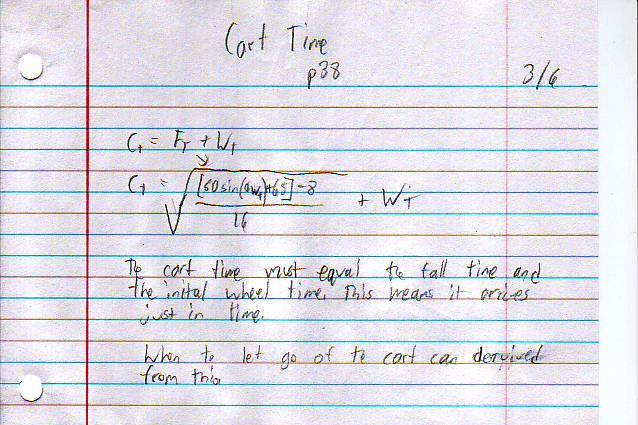 Cart Time
p38
3/6
C_T = F_T + W_T
C_T = √([50sin(9W_T)+65]-8 / 16) + W_T
The cart time must equal the fall time and
the inital wheel time. This means it arrices
just in time.
When to let go of te cart can deryived
from this